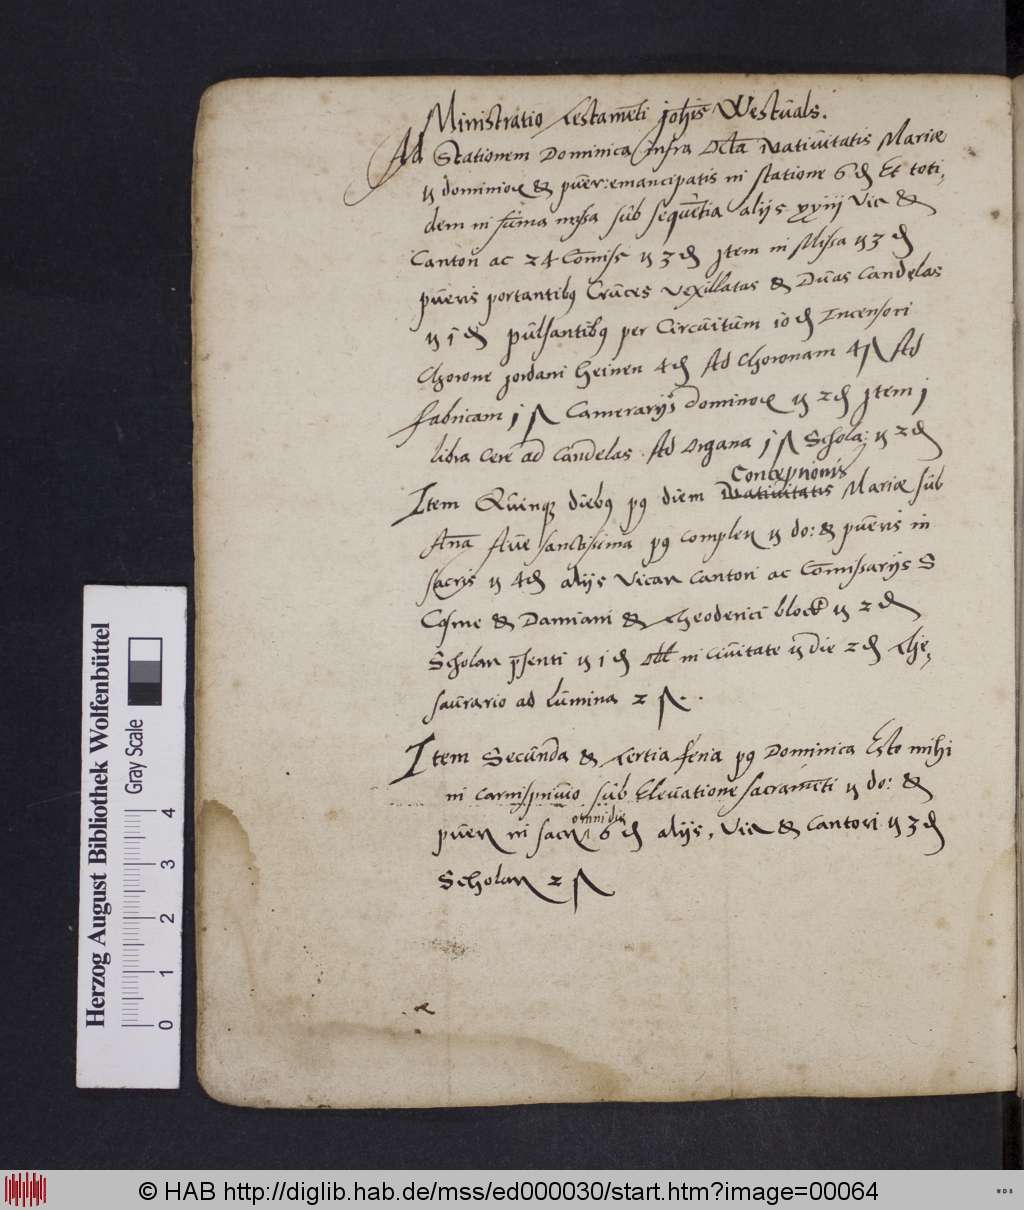 Ministratio testamēti johīs Westūals.
Ad Stationem Dominica infra Octā Natiūitatis Mariæ
dominior & pūer: emancipatis in statione 6 Et toti-
dem in sūma missa sūb seqūētia alijs xxiij Vic &
Cantori ac 24 Comiss 3 Item in Missa 3
pūeris portantibus Crūces vexillatas & Dūas Candelas
1 pūlsantibus per Circūitūm 10 Incensori
Chorone jordani Heinen 4 Ad Choronam 4 Ad
fabricam j Camerarijs dominor 2 Item j
libra Cere ad Candelas Ad Organa j Schola: 2
Conceptionis
Item Qūinque diebus post diem Natiūitatis Mariæ sūb
Aña Aūe sanctissima post complen do: & pūeris in
sacris 4 alijs Vicar Cantori ac Comissarijs S
Cosme & Damiani & theoderici block 2
Scholar psenti 1 in ciūitate die 2 The-
saūrario ad lūmina 2 . .
Item Secūnda & tertia feria post Dominica Esto mihi
in carnispriūio sūb Eleūatione sacramēti do: &
omni die
pūer in sacr 6 alijs, Vic & Cantori 3
Scholar 2
Herzog August Bibliothek Wolfenbüttel
Gray Scale
0 1 2 3 4
© HAB http://diglib.hab.de/mss/ed000030/start.htm?image=00064